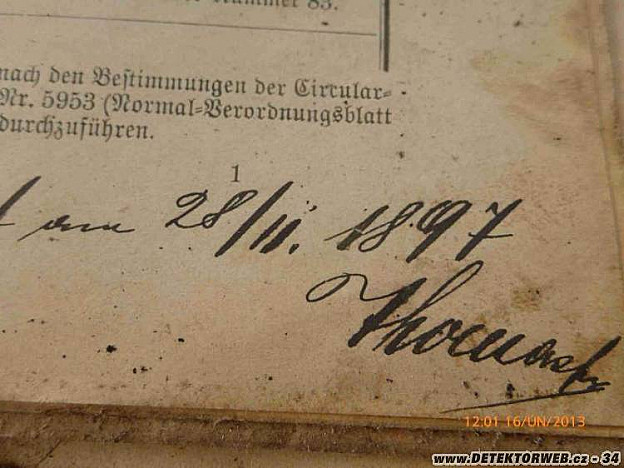 Nummer 83.
nach den Bestimmungen der Circular-
Nr. 5953 (Normal-Verordnungsblatt
durchzuführen.
1
am 28/11. 1897
12:01 16/JUN/2013
www.DETEKTORWEB.cz - 34